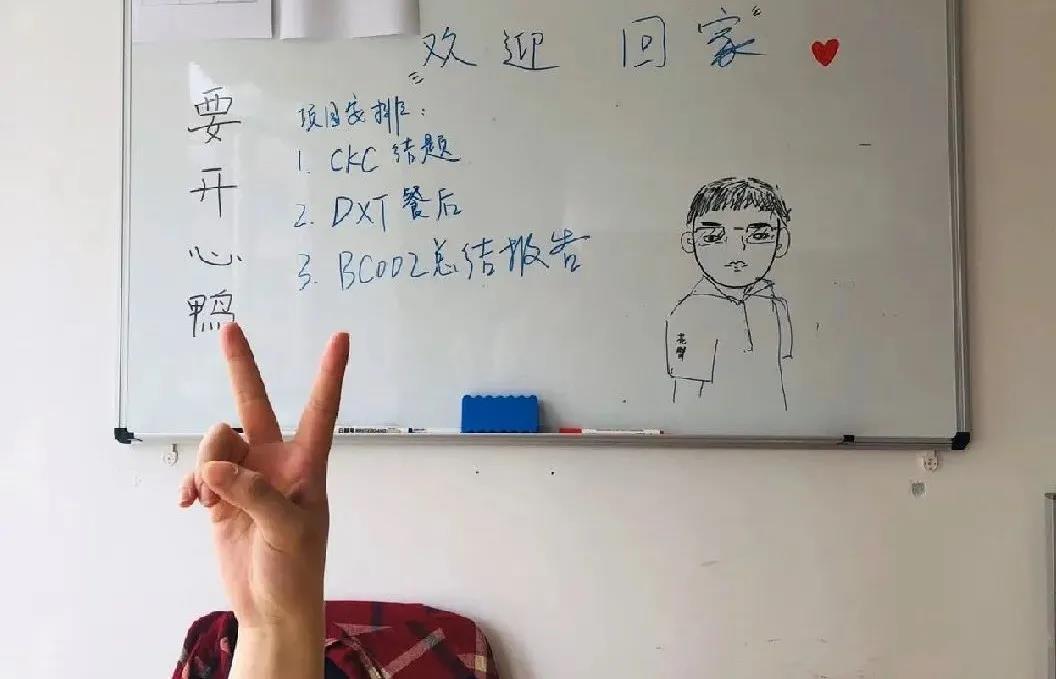 欢迎 回家
要开心鸭
项目安排:
1. CKC 结题
2. DXT 餐后
3. BC002总结报告
花臂